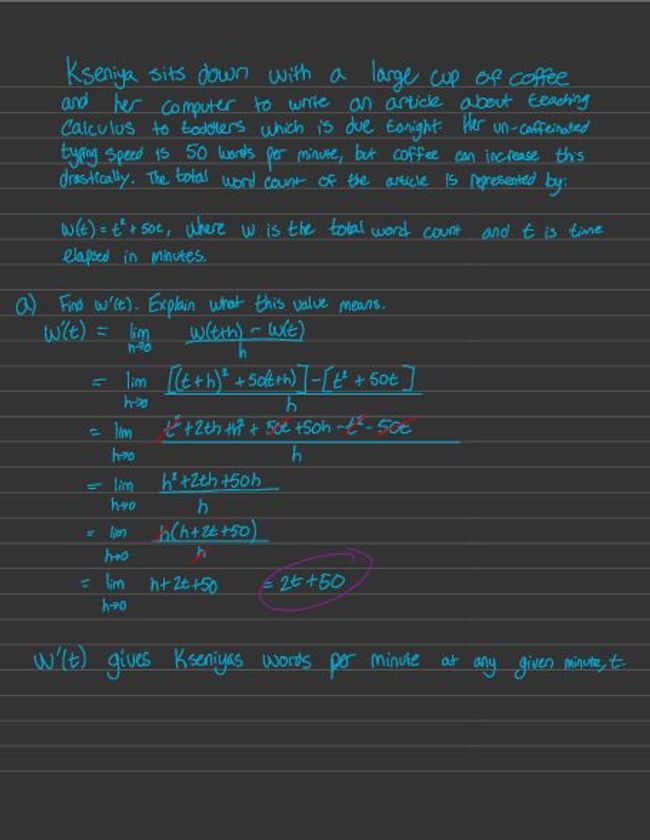 Kseniya sits down with a large cup of coffee
and her computer to write an article about teaching
calculus to toddlers which is due tonight. Her un-caffeinated
typing speed is 50 words per minute, but coffee can increase this
drastically. The total word count of the article is represented by:
W(t) = t² + 50t, where W is the total word count and t is time
elapsed in minutes.
a) Find W'(t). Explain what this value means.
W'(t) = lim h→0 W(t+h) - W(t) / h
= lim h→0 [(t+h)² + 50(t+h)] - [t² + 50t] / h
= lim h→0 t² + 2th + h² + 50t + 50h - t² - 50t / h
= lim h→0 h² + 2th + 50h / h
= lim h→0 h(h + 2t + 50) / h
= lim h→0 h + 2t + 50 = 2t + 50
W'(t) gives Kseniyas words per minute at any given minute, t.